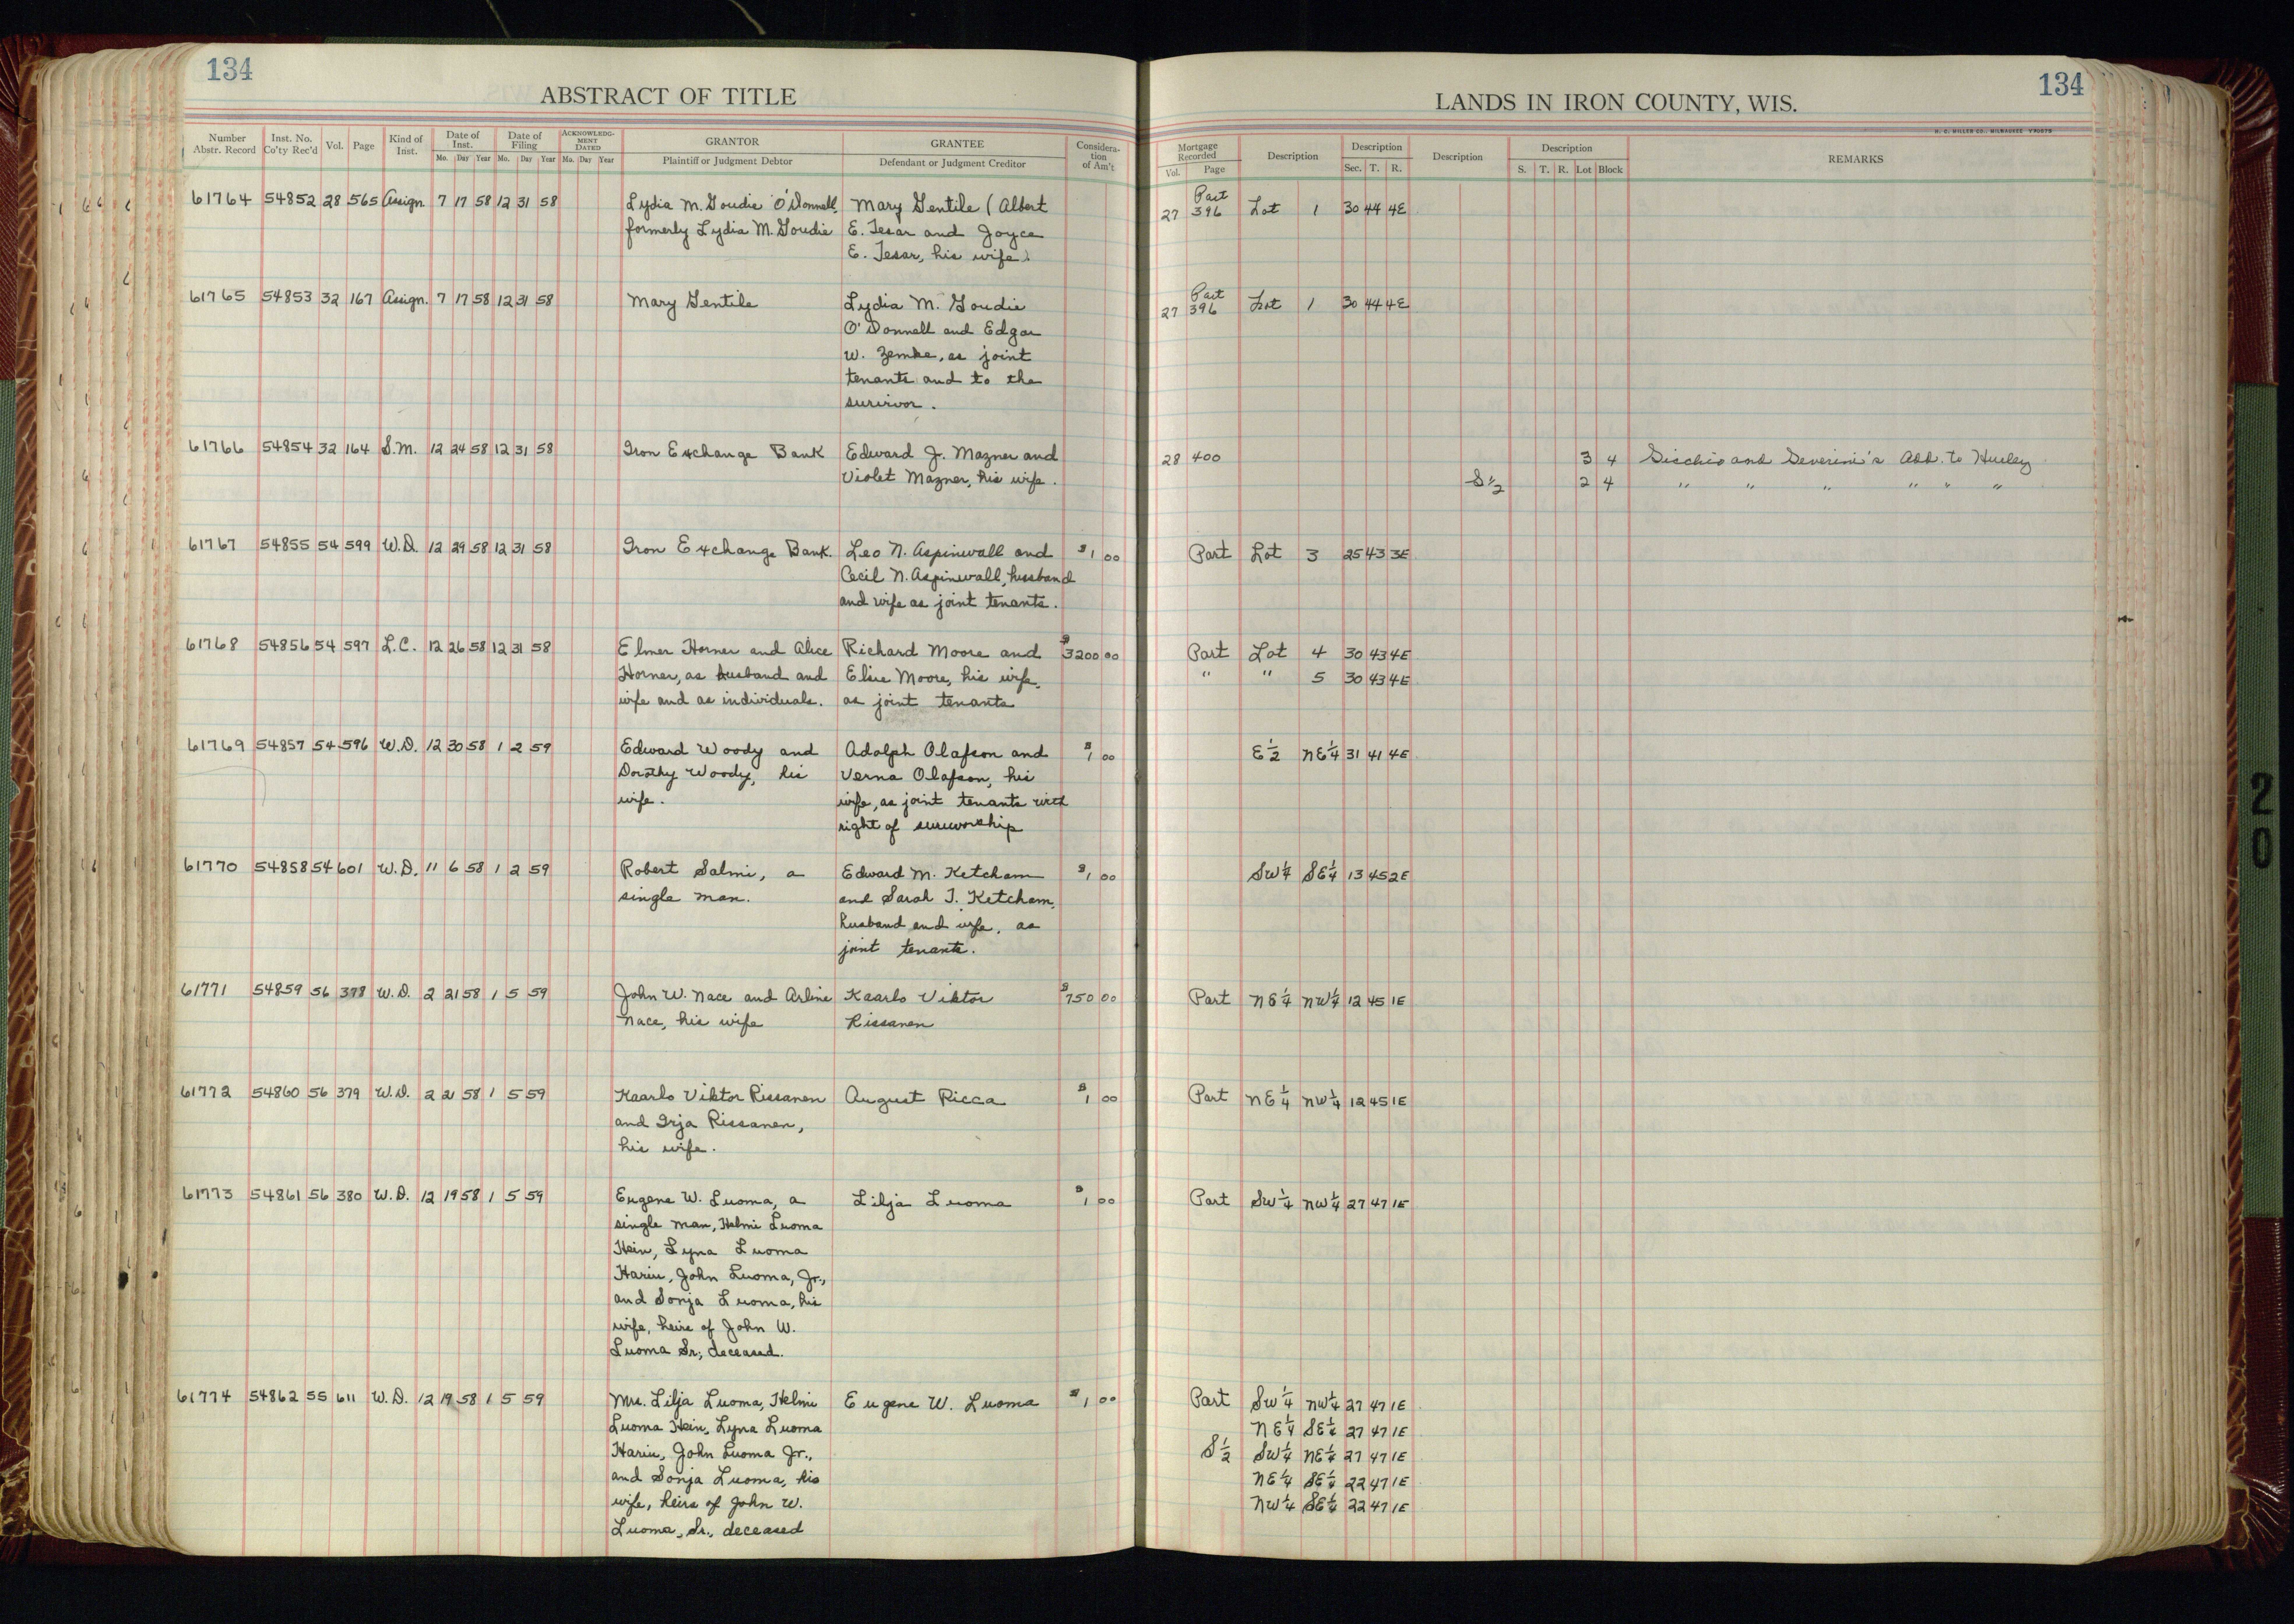 134
ABSTRACT OF TITLE
Number Abstr. Record Inst. No. Co'ty Rec'd Vol. Page Kind of Inst. Date of Inst. Mo. Day Year Date of Filing Mo. Day Year ACKNOWLEDGMENT DATED Mo. Day Year GRANTOR Plaintiff or Judgment Debtor GRANTEE Defendant or Judgment Creditor Consideration of Am't
61764 54852 28 565 Assign. 7 17 58 12 31 58 Lydia M. Goudie O'Donnell, Mary Gentile (Albert
formerly Lydia M. Goudie E. Tesar and Joyce
E. Tesar, his wife)
61765 54853 32 167 Assign. 7 17 58 12 31 58 Mary Gentile Lydia M. Goudie
O'Donnell and Edgar
W. Zemke, as joint
tenants and to the
survivor.
61766 54854 32 164 S.M. 12 24 58 12 31 58 Iron Exchange Bank Edward J. Mazner and
Violet Mazner, his wife.
61767 54855 54 599 W.D. 12 29 58 12 31 58 Iron Exchange Bank. Leo N. Aspinwall and $1 00
Cecil N. Aspinwall, husband
and wife as joint tenants.
61768 54856 54 597 L.C. 12 26 58 12 31 58 Elmer Horner and Alice Richard Moore and $3200 00
Horner, as husband and Elsie Moore, his wife,
wife and as individuals. as joint tenants
61769 54857 54 596 W.D. 12 30 58 1 2 59 Edward Woody and Adolph Olafson and $1 00
Dorothy Woody, his Verna Olafson, his
wife. wife, as joint tenants with
right of surviorship
61770 54858 54 601 W.D. 11 6 58 1 2 59 Robert Salmi, a Edward M. Ketcham $1 00
single man. and Sarah T. Ketcham,
husband and wife, as
joint tenants.
61771 54859 56 378 W.D. 2 21 58 1 5 59 John W. Nace and Arline Kaarlo Viktor $750 00
Nace, his wife Rissanen
61772 54860 56 379 W.D. 2 21 58 1 5 59 Kaarlo Viktor Rissanen August Ricca $1 00
and Irja Rissanen,
his wife.
61773 54861 56 380 W.D. 12 19 58 1 5 59 Eugene W. Luoma, a Lilja Luoma $1 00
single man, Helmi Luoma
Hein, Lyna Luoma
Hariu, John Luoma, Jr.,
and Sonja Luoma, his
wife, heirs of John W.
Luoma Sr., deceased.
61774 54862 55 611 W.D. 12 19 58 1 5 59 Mrs. Lilja Luoma, Helmi Eugene W. Luoma $1 00
Luoma Hein, Lyna Luoma
Hariu, John Luoma Jr.,
and Sonja Luoma, his
wife, heirs of John W.
Luoma, Sr., deceased
134
LANDS IN IRON COUNTY, WIS.
H. C. MILLER CO., MILWAUKEE
Mortgage Recorded Vol. Page Description Description Sec. T. R. Description Description S. T. R. Lot Block REMARKS
Part
27 396 Lot 1 30 44 4E
Part
27 396 Lot 1 30 44 4E
28 400 3 4 Gicchio and Severini's Add. to Hurley
S½ 2 4 " " " " " "
Part Lot 3 25 43 3E
Part Lot 4 30 43 4E
" " 5 30 43 4E
E½ NE¼ 31 41 4E
SW¼ SE¼ 13 45 2E
Part NE¼ NW¼ 12 45 1E
Part NE¼ NW¼ 12 45 1E
Part SW¼ NW¼ 27 47 1E
Part SW¼ NW¼ 27 47 1E
NE¼ SE¼ 27 47 1E
S½ SW¼ NE¼ 27 47 1E
NE¼ SE¼ 22 47 1E
NW¼ SE¼ 22 47 1E
20